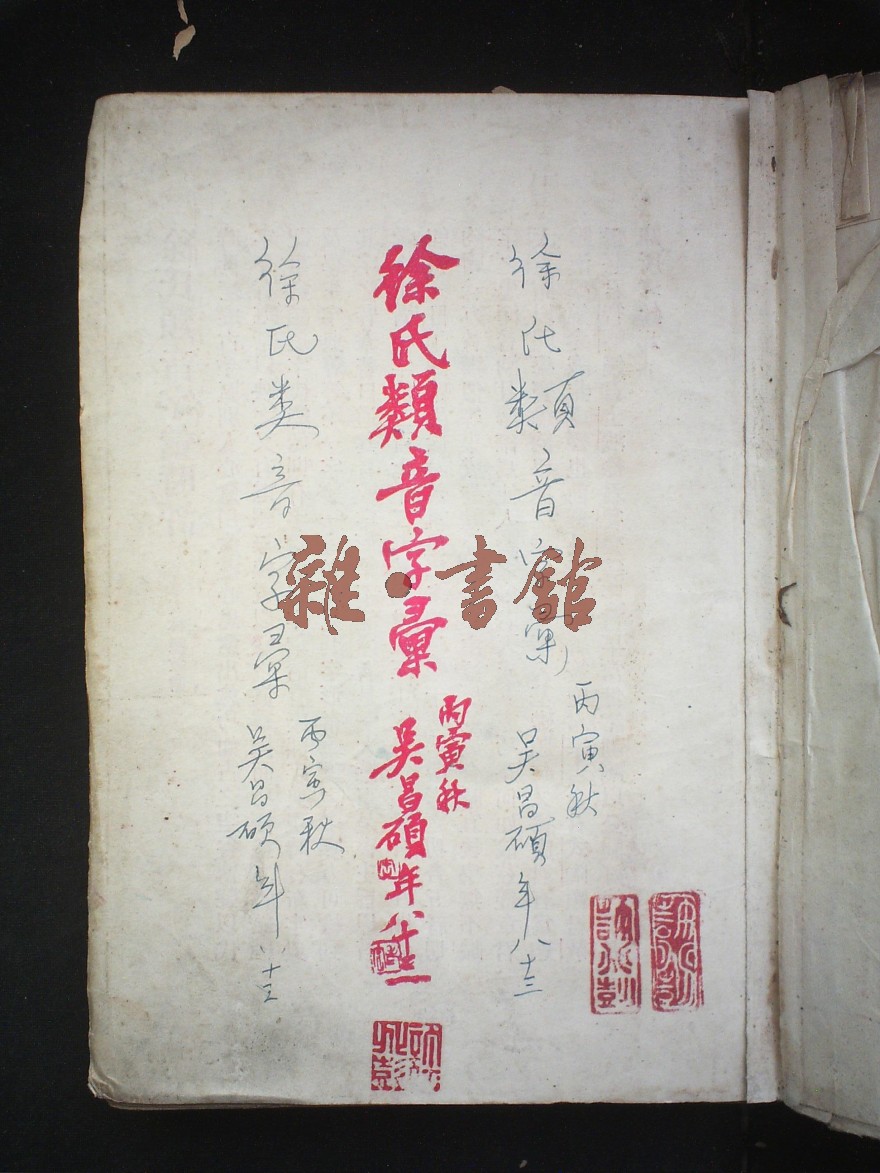 徐氏類音字彙
丙寅秋
吳昌碩年八十三
徐氏類音字彙
丙寅秋
吳昌碩年八十三
徐氏类音字彙
丙寅秋
吴昌碩年八十三
雜·書館